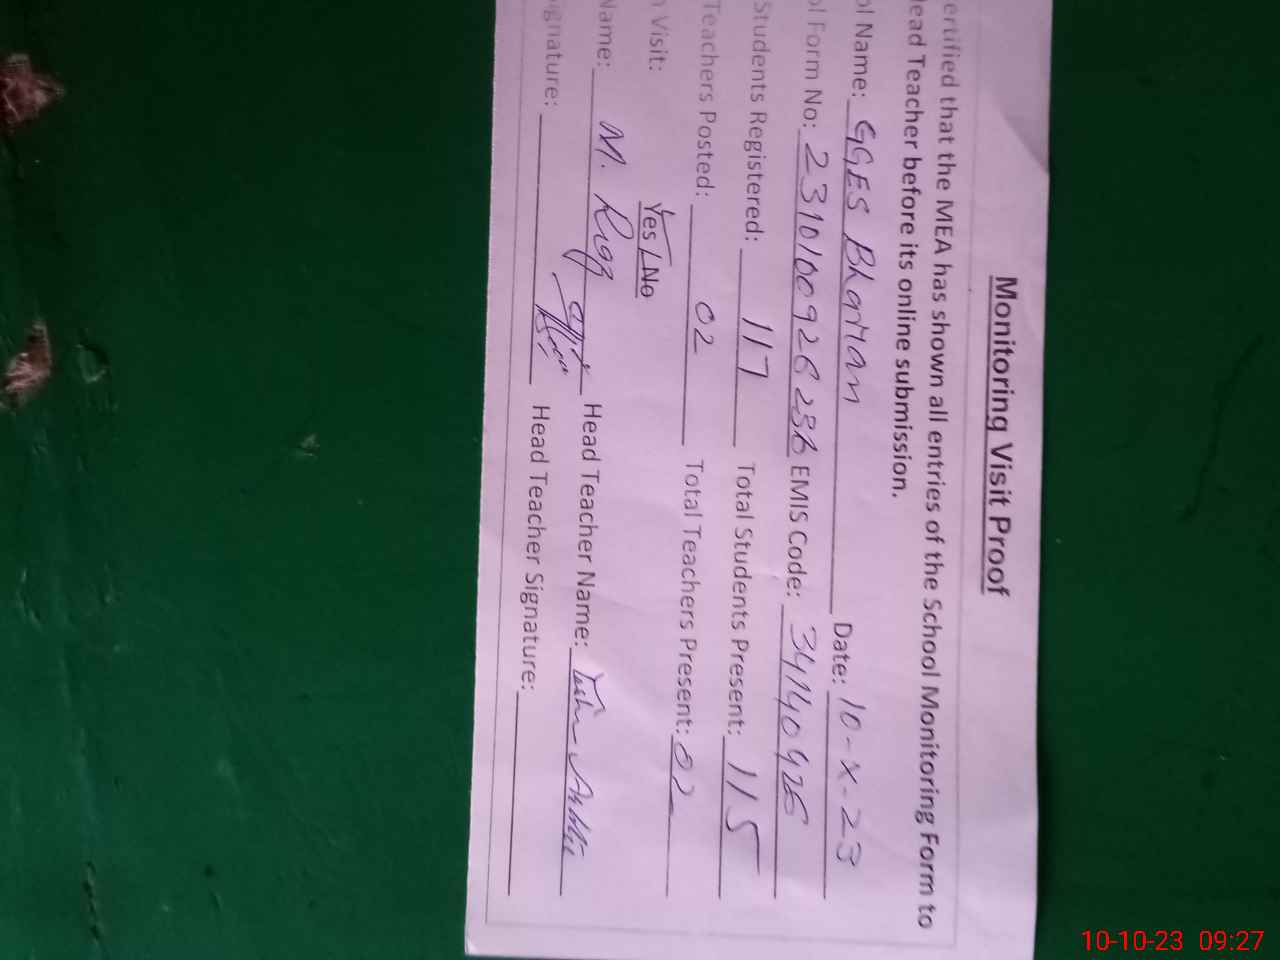 Monitoring Visit Proof
ertified that the MEA has shown all entries of the School Monitoring Form to
ead Teacher before its online submission.
ol Name: GGES Bhattan Date: 10-X-23
ol Form No: 2310100926286 EMIS Code: 34140926
Students Registered: 117 Total Students Present: 115
Teachers Posted: 02 Total Teachers Present: 02
n Visit: Yes / No
Name: M. Riaz Head Teacher Name:
ignature: Head Teacher Signature:
10-10-23 09:27